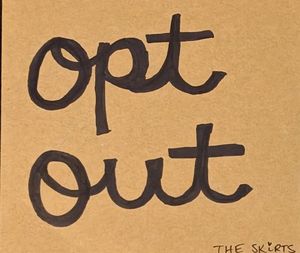 opt
out
THE SKiRTS